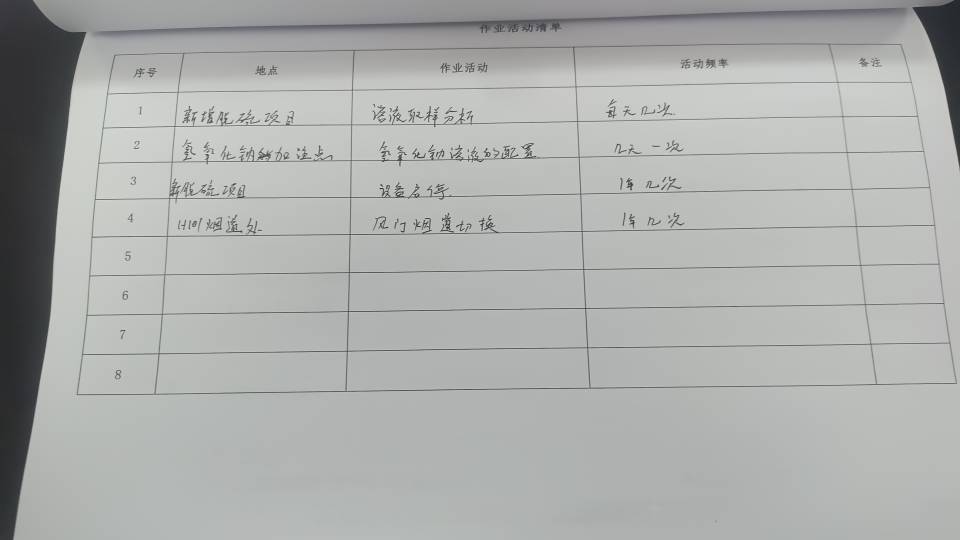 作业活动清单
序号 地点 作业活动 活动频率 备注
1 新增脱硫项目 溶液取样分析 每天几次
2 氢氧化钠加注点 氢氧化钠溶液的配置 几天一次
3 新脱硫项目 设备启停 1年几次
4 H101烟道处 风门烟道切换 1年几次
5
6
7
8